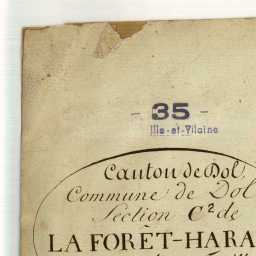 - 35 -
Ille-et-Vilaine
Canton de Dol
Commune de Dol
Section C² de
LA FORÊT-HARA